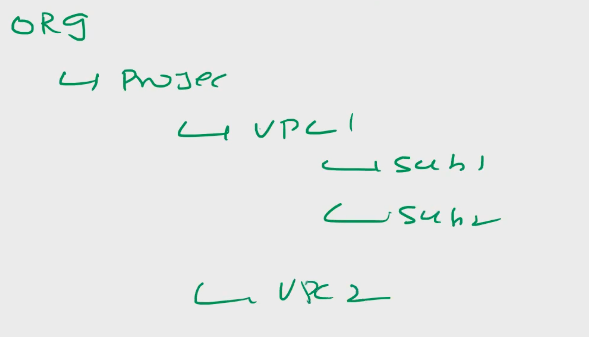 ORG
Projec
VPC1
Sub1
Sub2
VPC2